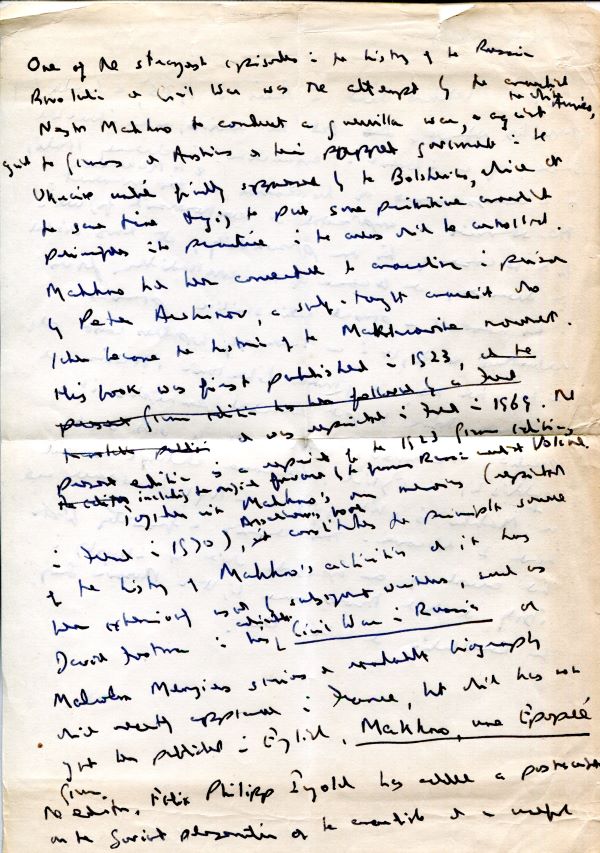 One of the strangest episodes in the history of the Russian
Revolution and Civil War was the attempt by the anarchist
Nestor Makhno to conduct a guerrilla war, against the White Armies,
the Germans and Austrians and their puppet government in the
Ukraine until finally suppressed by the Bolsheviks, while at
the same time trying to put some primitive anarchist
principles into practice in the areas which he controlled.
Makhno had been converted to anarchism in prison
by Peter Arshinov, a self-taught anarchist who
later became the historian of the Makhnovite movement.
This book was first published in 1923, and the
present German edition has been followed by a French
and was reprinted in French in 1969. The
present edition is a reprint of the 1923 German edition,
including the original foreword by the Russian anarchist Voline.
Together with Makhno's own memoirs (reprinted
in French in 1970), Arshinov's book constitutes the principle source
of the history of Makhno's activities and it has
been extensively used by subsequent writers, such as
David Footman in his admirable Civil War in Russia and
Malcolm Menzies in a readable biography
which recently appeared in France, but which has not
yet been published in English, Makhno, une Epopée
The German editor, Felix Philipp Ingold has added a postscript
on the Soviet persecution of the anarchists and a useful